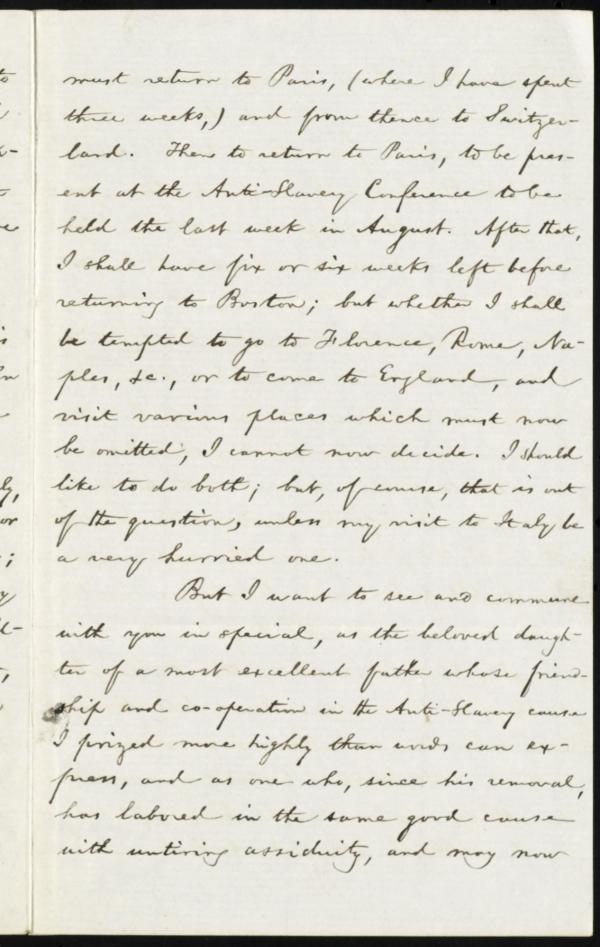 must return to Paris, (where I have spent
three weeks,) and from thence to Switzer-
land. Then to return to Paris, to be pres-
ent at the Anti-Slavery Conference to be
held the last week in August. After that,
I shall have five or six weeks left before
returning to Boston; but whether I shall
be tempted to go to Florence, Rome, Na-
ples, &c., or to come to England, and
visit various places which must now
be omitted, I cannot now decide. I should
like to do both; but, of course, that is out
of the question, unless my visit to Italy be
a very hurried one.
But I want to see and commune
with you in special, as the beloved daugh-
ter of a most excellent father whose friend-
ship and co-operation in the Anti-Slavery cause
I prized more highly than words can ex-
press, and as one who, since his removal,
has labored in the same good cause
with untiring assiduity, and may now